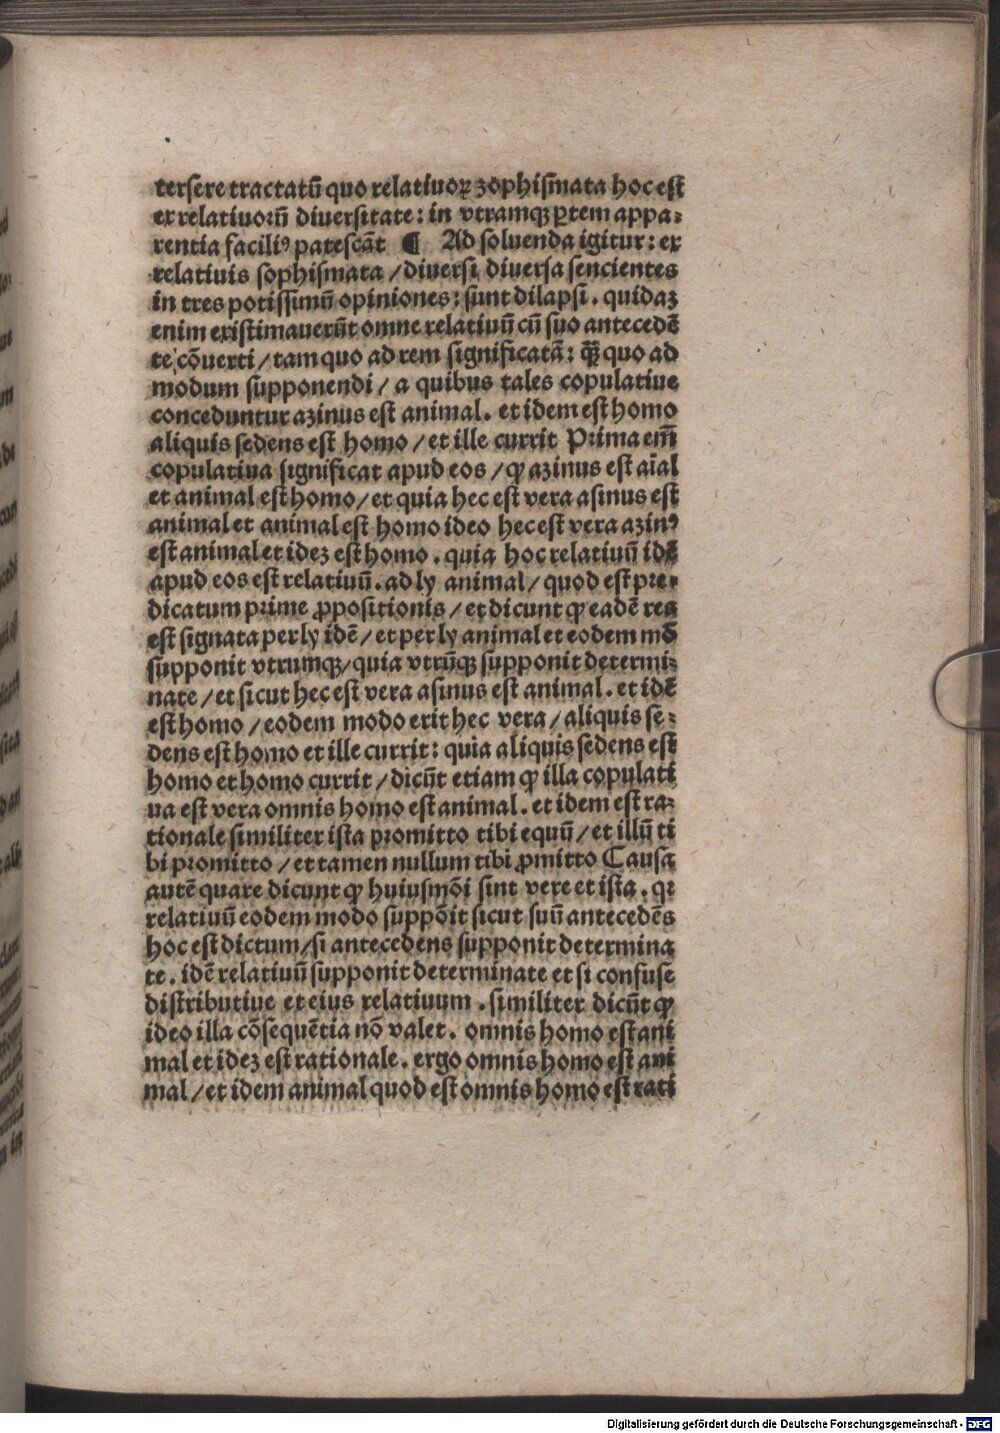 tersere tractatū quo relatiuoꝝ zophismata hoc est
ex relatiuorū diuersitate: in vtramqꝫ ꝑtem appa⸗
rentia faciliꝰ patescāt ¶ Ad soluenda igitur: ex
relatiuis sophismata / diuersi diuersa sencientes
in tres potissimū opiniones: sunt dilapsi. quidaꝫ
enim existimauerūt omne relatiuū cū suo antecedē
te cōuerti / tam quo ad rem significatā: qꝫ̄ quo ad
modum supponendi / a quibus tales copulatiue
conceduntur azinus est animal. et idem est homo
aliquis sedens est homo / et ille currit Prima em̄
copulatiua significat apud eos / ꝙ azinus est aīal
et animal est homo / et quia hec est vera asinus est
animal et animal est homo ideo hec est vera azinꝰ
est animal et ideꝫ est homo. quia hoc relatiuū idē
apud eos est relatiuū. ad ly animal / quod est pre⸗
dicatum prime ꝓpositionis / et dicunt ꝙ eadē res
est signata per ly idē / et per ly animal et eodem mō
supponit vtrumqꝫ / quia vtrūqꝫ supponit determi⸗
nate / et sicut hec est vera asinus est animal. et idē
est homo / eodem modo erit hec vera / aliquis se⸗
dens est homo et ille currit: quia aliquis sedens est
homo et homo currit / dicūt etiam ꝙ illa copulati
ua est vera omnis homo est animal. et idem est ra⸗
tionale similiter ista promitto tibi equū / et illū ti
bi promitto / et tamen nullum tibi ꝓmitto Causa
autē quare dicunt ꝙ huiusmōi sint vere et ista. qr
relatiuū eodem modo suppōit sicut suū antecedēs
hoc est dictum / si antecedens supponit determina
te. idē relatiuū supponit determinate et si confuse
distributiue et eius relatiuum. similiter dicūt ꝙ
ideo illa cōsequētia nō valet. omnis homo est ani
mal et ideꝫ est rationale. ergo omnis homo est ani
mal / et idem animal quod est omnis homo est rati
Digitalisierung gefördert durch die Deutsche Forschungsgemeinschaft - DFG